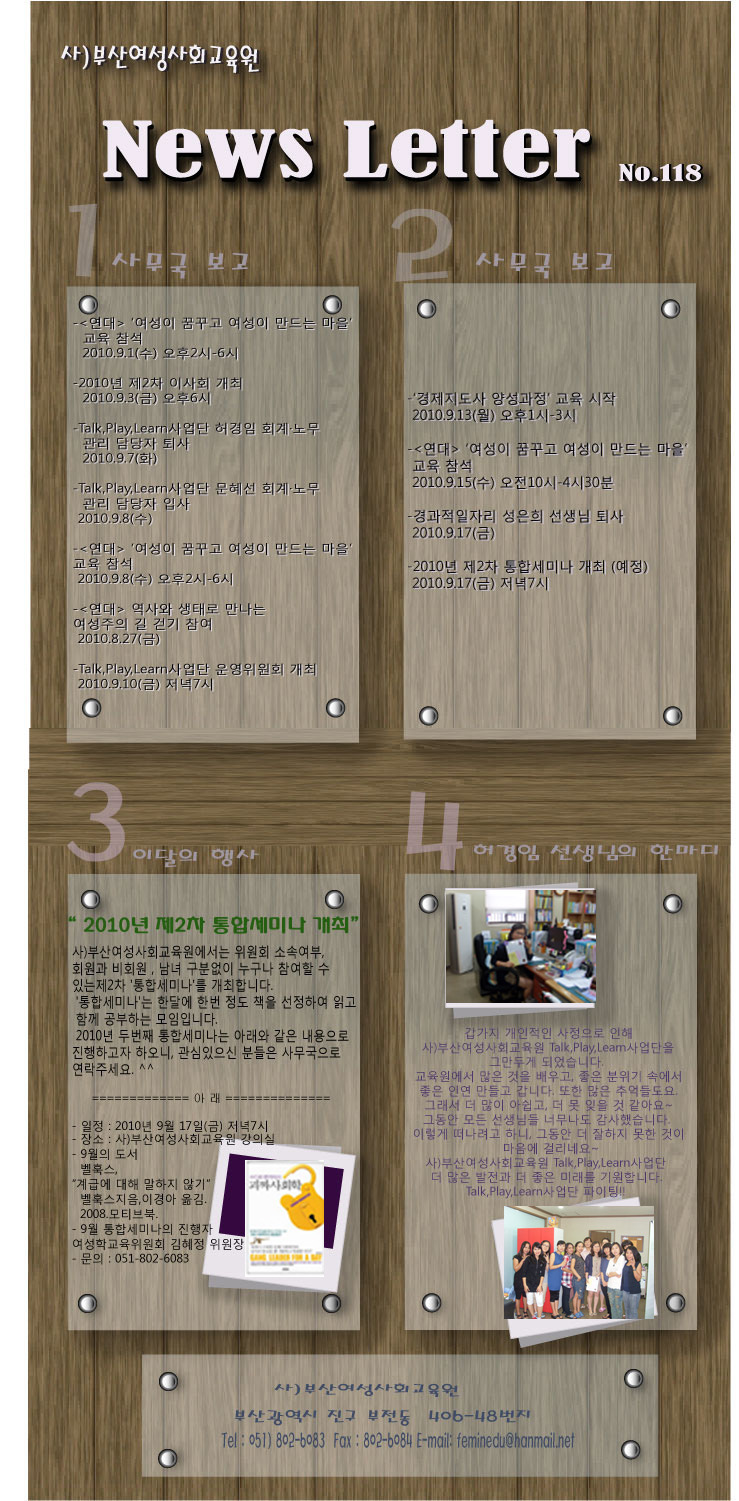 사)부산여성사회교육원
News Letter No.118
1 사무국 보고
-<연대> '여성이 꿈꾸고 여성이 만드는 마을'
교육 참석
2010.9.1(수) 오후2시-6시
-2010년 제2차 이사회 개최
2010.9.3(금) 오후6시
-Talk,Play,Learn사업단 허경임 회계·노무
관리 담당자 퇴사
2010.9.7(화)
-Talk,Play,Learn사업단 문혜선 회계·노무
관리 담당자 입사
2010.9.8(수)
-<연대> '여성이 꿈꾸고 여성이 만드는 마을'
교육 참석
2010.9.8(수) 오후2시-6시
-<연대> 역사와 생태로 만나는
여성주의 길 걷기 참여
2010.8.27(금)
-Talk,Play,Learn사업단 운영위원회 개최
2010.9.10(금) 저녁7시
2 사무국 보고
-'경제지도사 양성과정' 교육 시작
2010.9.13(월) 오후1시-3시
-<연대> '여성이 꿈꾸고 여성이 만드는 마을'
교육 참석
2010.9.15(수) 오전10시-4시30분
-경과적일자리 성은희 선생님 퇴사
2010.9.17(금)
-2010년 제2차 통합세미나 개최 (예정)
2010.9.17(금) 저녁7시
3 이달의 행사
“ 2010년 제2차 통합세미나 개최”
사)부산여성사회교육원에서는 위원회 소속여부,
회원과 비회원 , 남녀 구분없이 누구나 참여할 수
있는제2차 '통합세미나'를 개최합니다.
'통합세미나'는 한달에 한번 정도 책을 선정하여 읽고
함께 공부하는 모임입니다.
2010년 두번째 통합세미나는 아래와 같은 내용으로
진행하고자 하오니, 관심있으신 분들은 사무국으로
연락주세요. ^^
============= 아 래 ==============
- 일정 : 2010년 9월 17일(금) 저녁7시
- 장소 : 사)부산여성사회교육원 강의실
- 9월의 도서
벨훅스,
“계급에 대해 말하지 않기”
벨훅스지음,이경아 옮김.
2008.모티브북.
- 9월 통합세미나의 진행자
여성학교육위원회 김혜정 위원장
- 문의 : 051-802-6083
괴짜사회학
GANG LEADER FOR A DAY
4 허경임 선생님의 한마디
갑가지 개인적인 사정으로 인해
사)부산여성사회교육원 Talk,Play,Learn사업단을
그만두게 되었습니다.
교육원에서 많은 것을 배우고, 좋은 분위기 속에서
좋은 인연 만들고 갑니다. 또한 많은 추억들도요.
그래서 더 많이 아쉽고, 더 못 잊을 것 같아요~
그동안 모든 선생님들 너무나도 감사했습니다.
이렇게 떠나려고 하니, 그동안 더 잘하지 못한 것이
마음에 걸리네요~
사)부산여성사회교육원 Talk,Play,Learn사업단
더 많은 발전과 더 좋은 미래를 기원합니다.
Talk,Play,Learn사업단 파이팅!!
사)부산여성사회교육원
부산광역시 진구 부전동 406-48번지
Tel : 051) 802-6083 Fax : 802-6084 E-mail: feminedu@hanmail.net